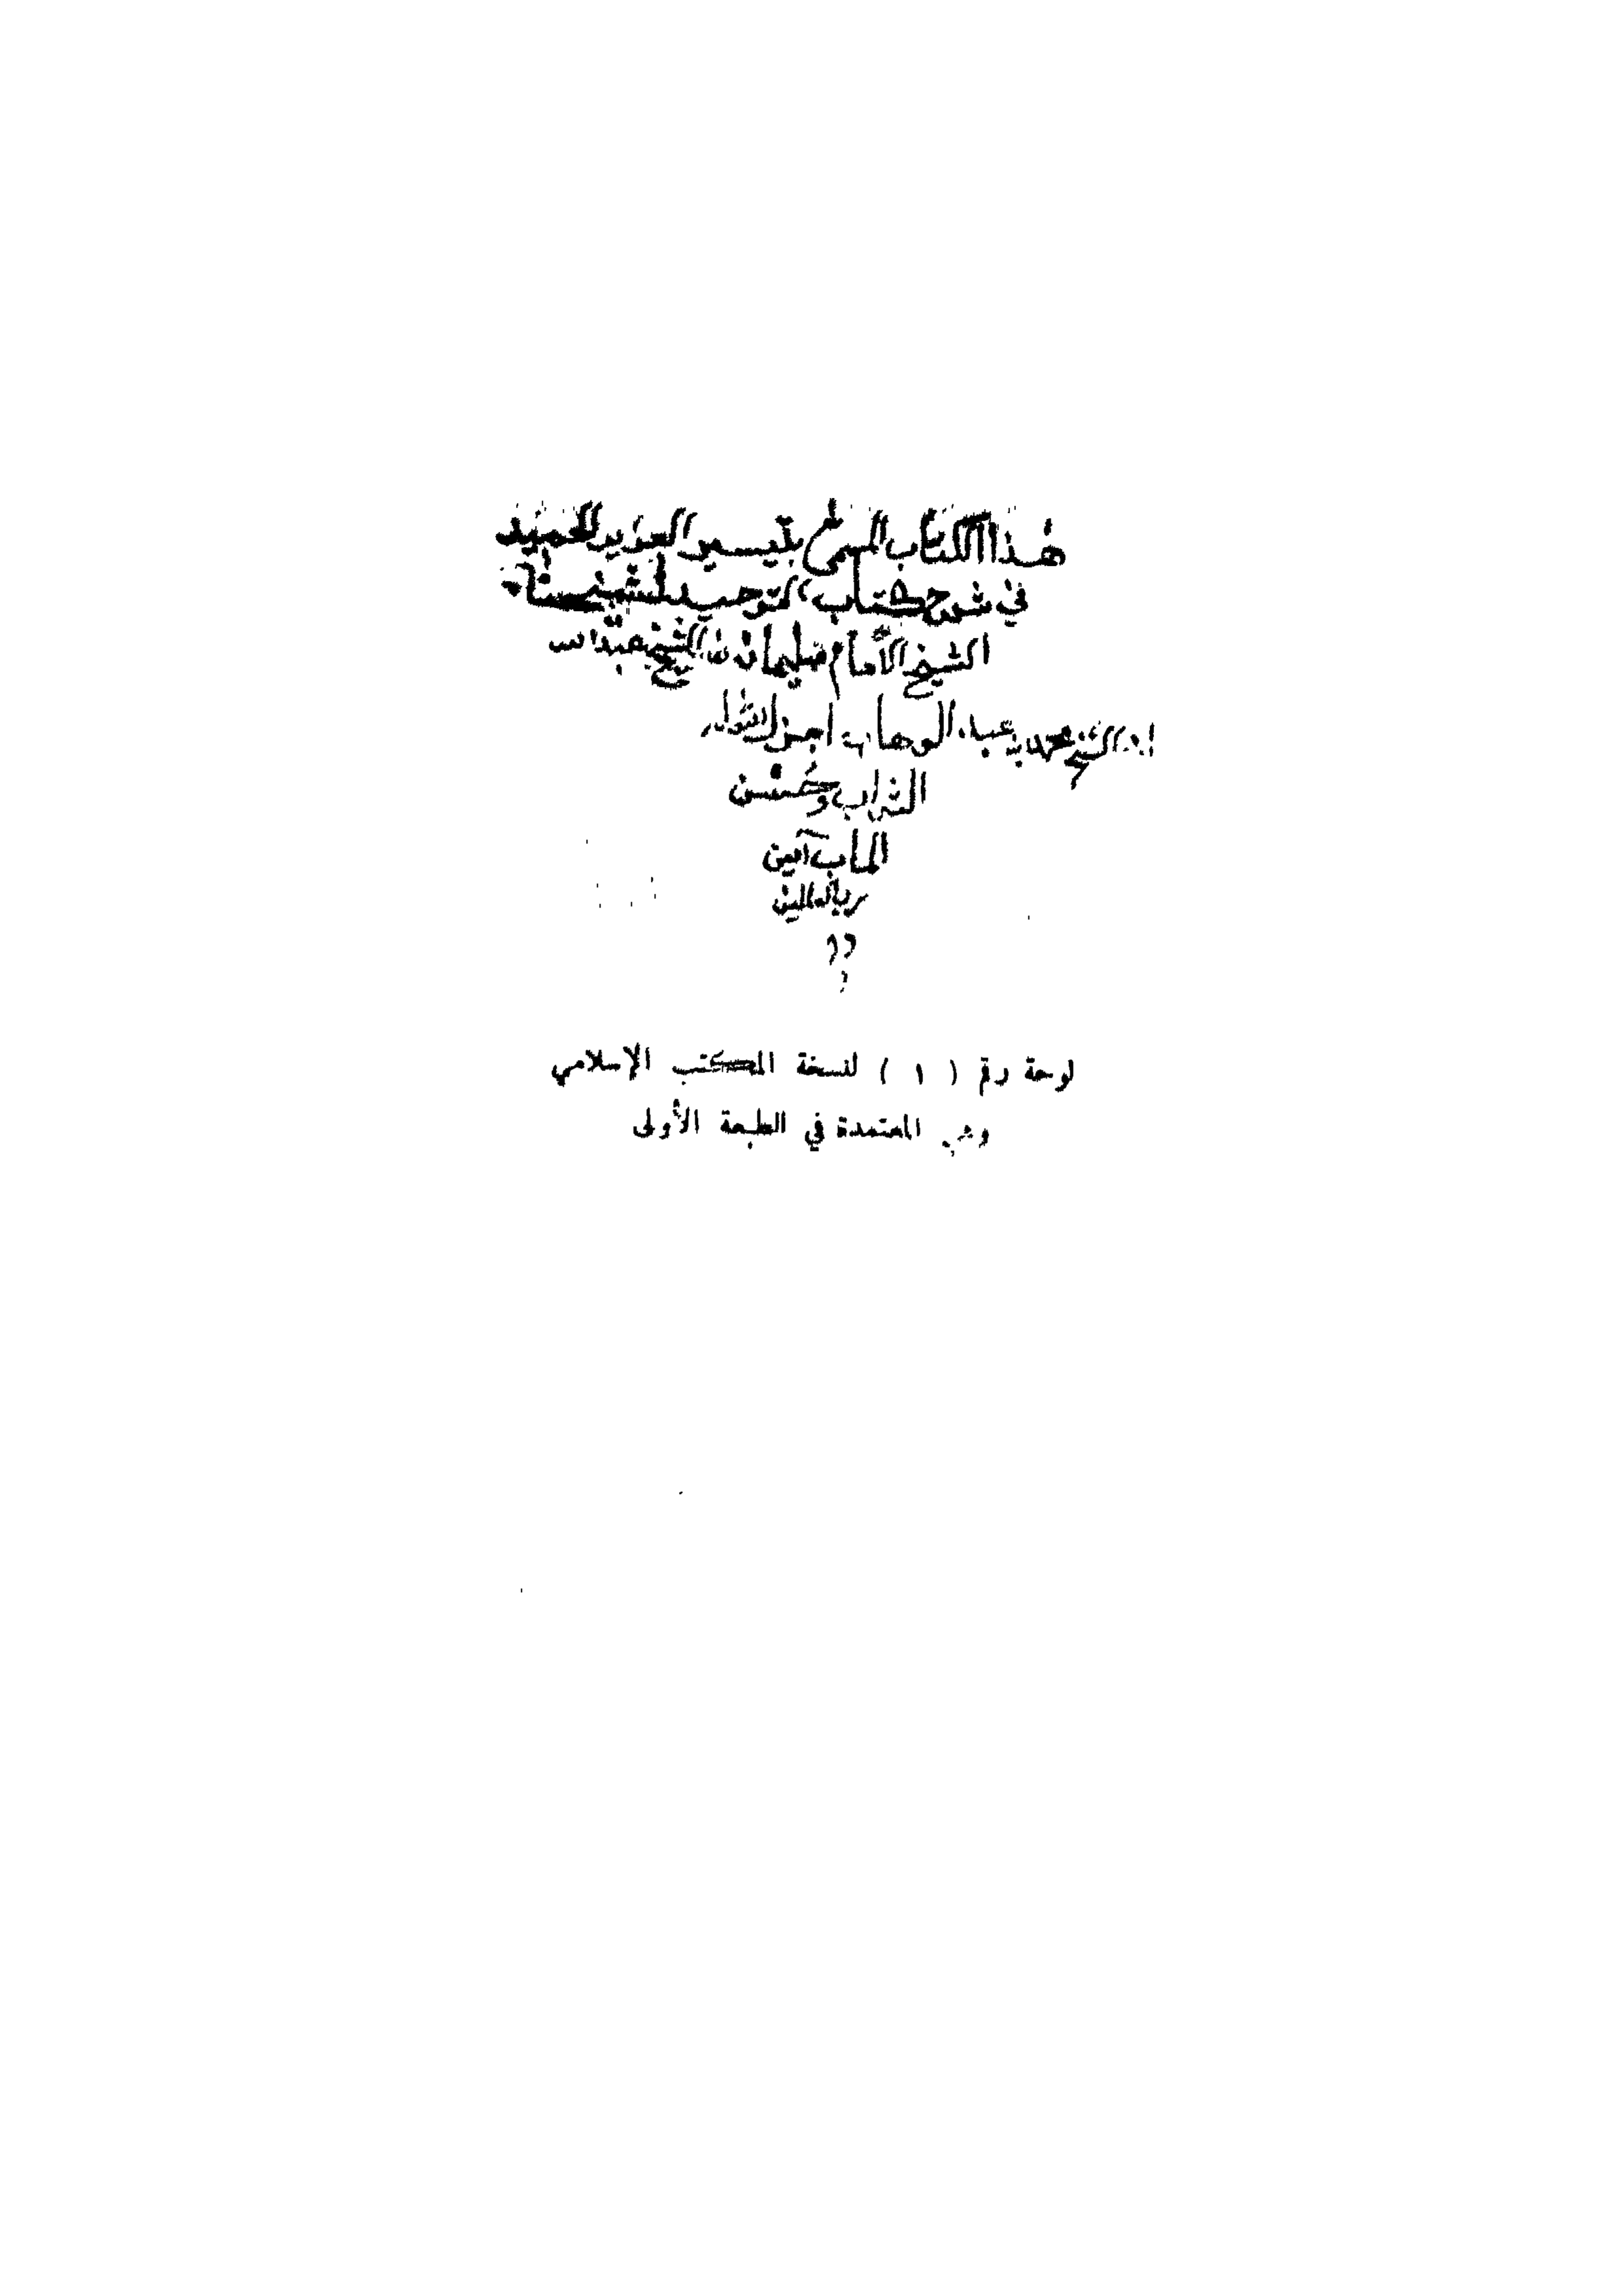 هذا الكتاب المسمى بتيسير العزيز الحميد
في شرح كتاب التوحيد لشيخنا
الشيخ الإمام سليمان بن الشيخ عبد الله
ابن الشيخ محمد بن عبد الوهاب اجزل الله له
الثواب وحسن
المآب آمين
رب العالمين
لوحة رقم ( ١ ) لنسخة المكتب الإسلامي
وهي المعتمدة في الطبعة الأولى